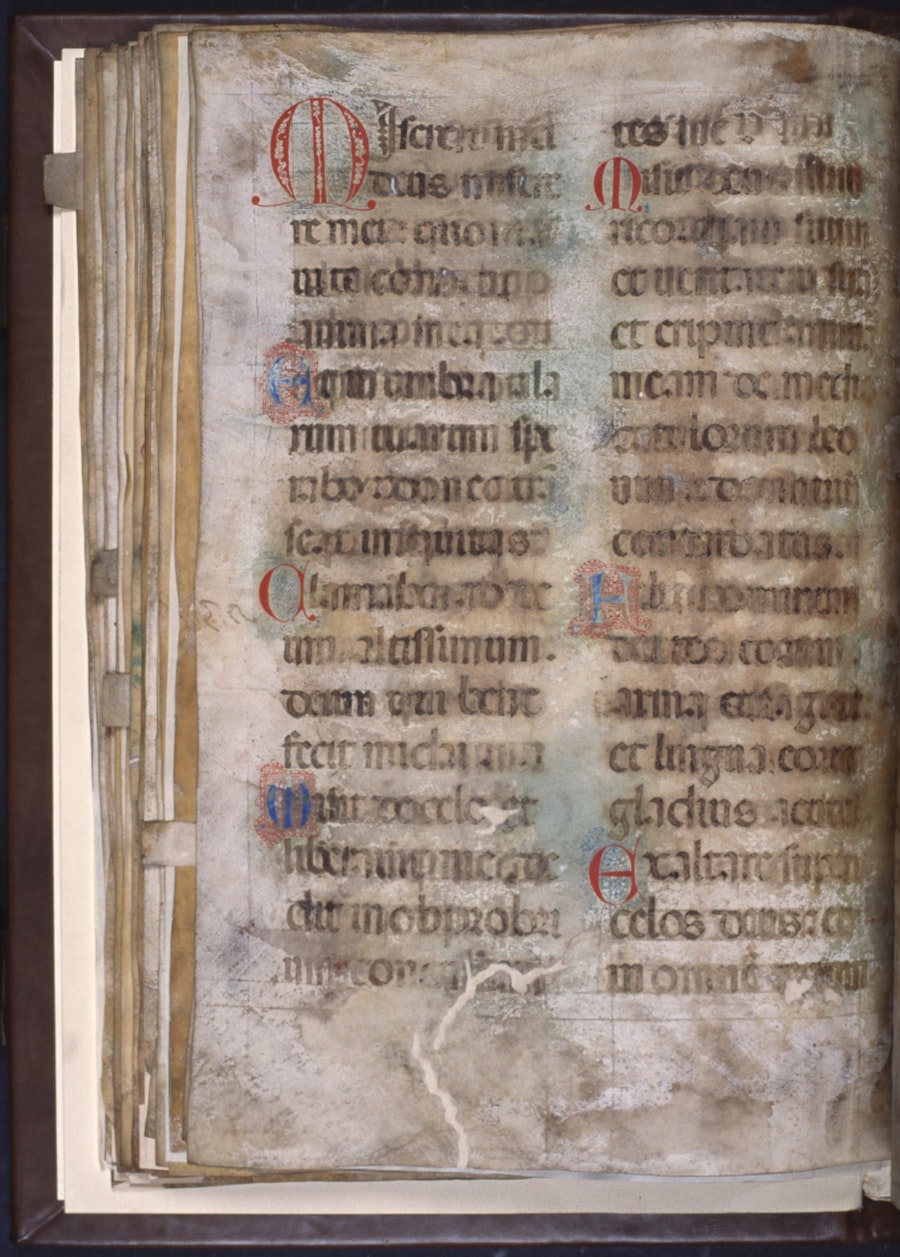 Miserere mei
deus misere
re mei: quonia
in te confidit
anima mea
Et in umbra ala
rum tuarum spe
rabo: donec tra
seat iniquitas.
Clamabo ad de
um altissimum.
deum qui bene
fecit michi
Misit de celo et
liberavit me: de
dit in obprobri
um
tes me
Misit deus
ricordiam suam
et veritatem su
et eripuit anima
meam de medio
catulorum leo
num: dormivi
conturbatus.
hominum
dentes eorum
arma et sagitte.
et lingua eorum
gladius acutus
Exaltare super
celos deus: et
in omnem